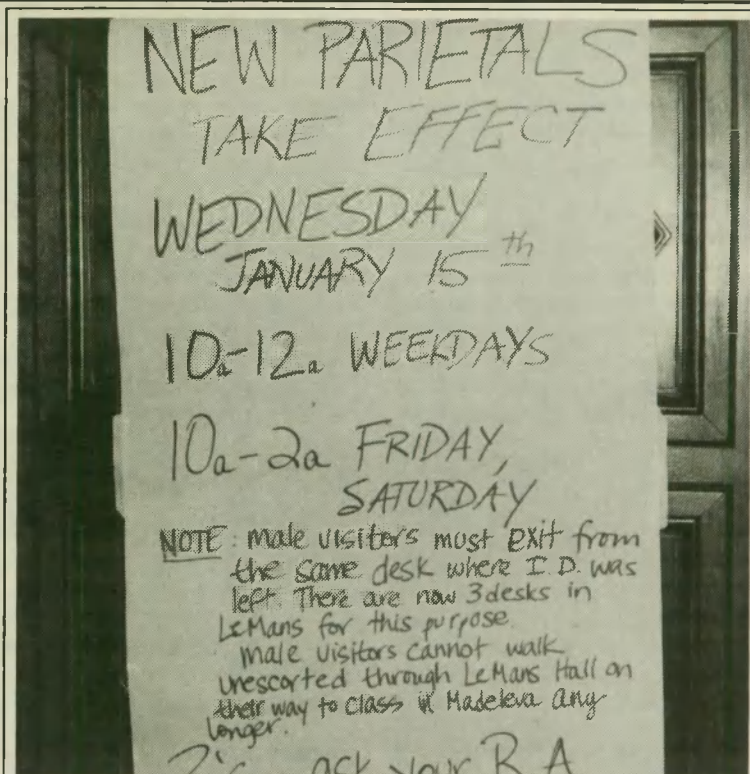 NEW PARIETALS
TAKE EFFECT
WEDNESDAY
JANUARY 15th
10a-12a WEEKDAYS
10a-2a FRIDAY,
SATURDAY
NOTE: male visitors must exit from
the same desk where I.D. was
left. There are now 3 desks in
LeMans for this purpose.
male visitors cannot walk
unescorted through LeMans Hall on
their way to class in Madeleva any
longer.
ask your R.A.